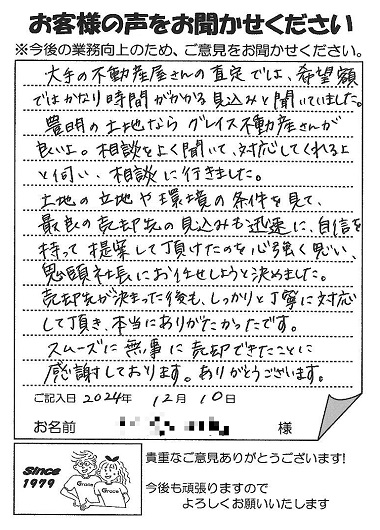 お客様の声をお聞かせください
※今後の業務向上のため、ご意見をお聞かせください。
大手の不動産屋さんの査定では、希望額
ではかなり時間がかかる見込みと聞いていました。
豊明の土地ならグレイス不動産さんが
良いよ。相談をよく聞いて、対応してくれるよ
と伺い、相談に行きました。
土地の立地や環境の条件を見て、
最良の売却先の見込みも迅速に、自信を
持って提案して頂けたのを心強く思い、
鬼頭社長にお任せしようと決めました。
売却先が決まった後も、しっかりと丁寧に対応
して頂き、本当にありがたかったです。
スムーズに無事に売却できたことに
感謝しております。ありがとうございます。
ご記入日 2024年 12月 10日
お名前 様
Since
1979
Grace
Grace
貴重なご意見ありがとうございます!
今後も頑張りますので
よろしくお願いいたします